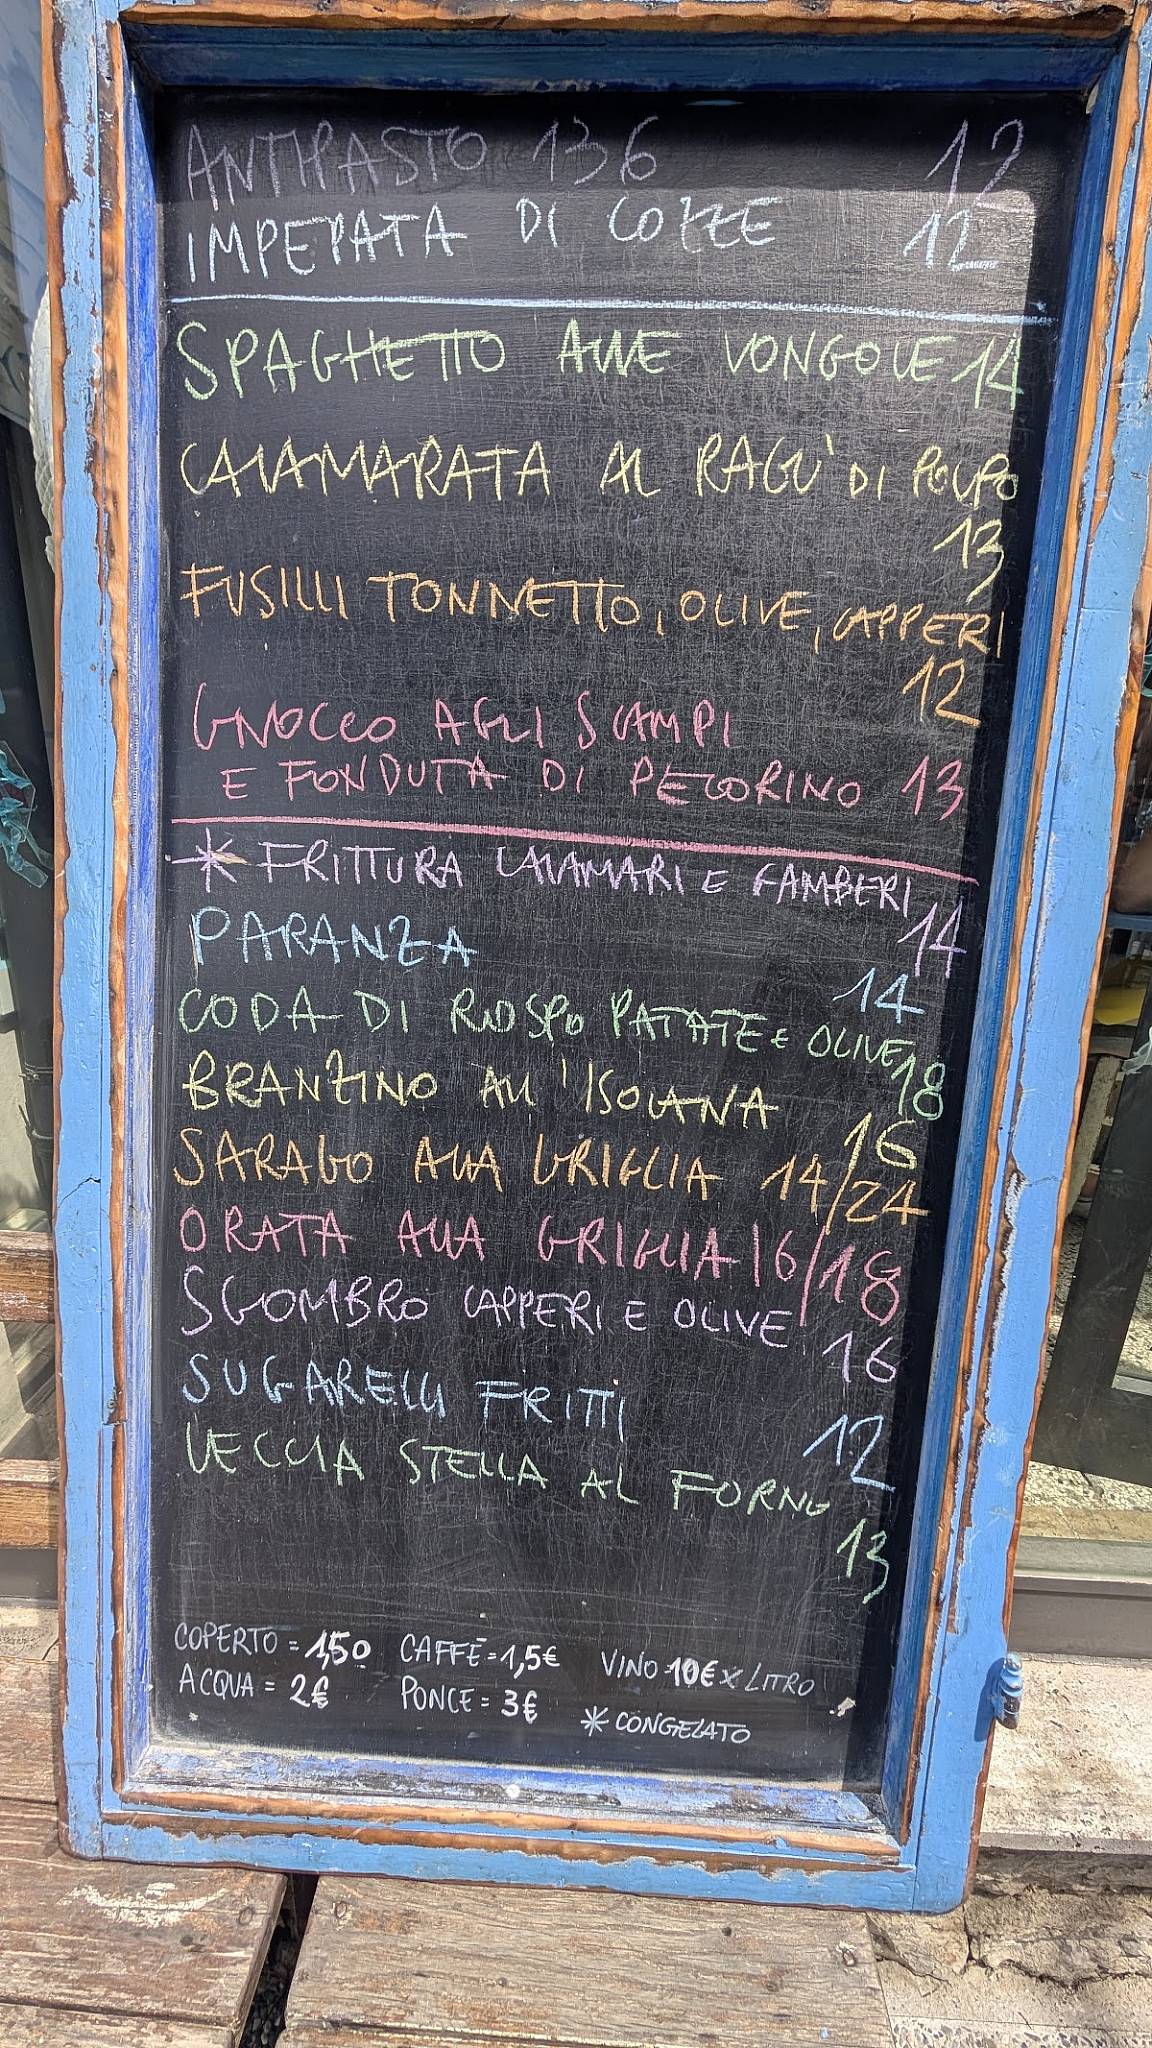 ANTIPASTO 136 12
IMPEPATA DI COZZE 12
SPAGHETTO ALLE VONGOLE 14
CALAMARATA AL RAGU' DI POLPO
13
FUSILLI TONNETTO, OLIVE, CAPPERI
12
GNOCCO AGLI SCAMPI
E FONDUTA DI PECORINO 13
* FRITTURA CALAMARI E GAMBERI
14
PARANZA
14
CODA DI ROSPO PATATE E OLIVE 18
BRANZINO ALL'ISOLANA
16
SARAGO ALLA GRIGLIA 14/24
ORATA ALLA GRIGLIA 16/18
SGOMBRO CAPPERI E OLIVE
16
SUGARELLI FRITTI
12
VECCIA STELLA AL FORNO
13
COPERTO = 1,50 CAFFÈ = 1,5€ VINO 10€ x LITRO
ACQUA = 2€ PONCE = 3€ * CONGELATO